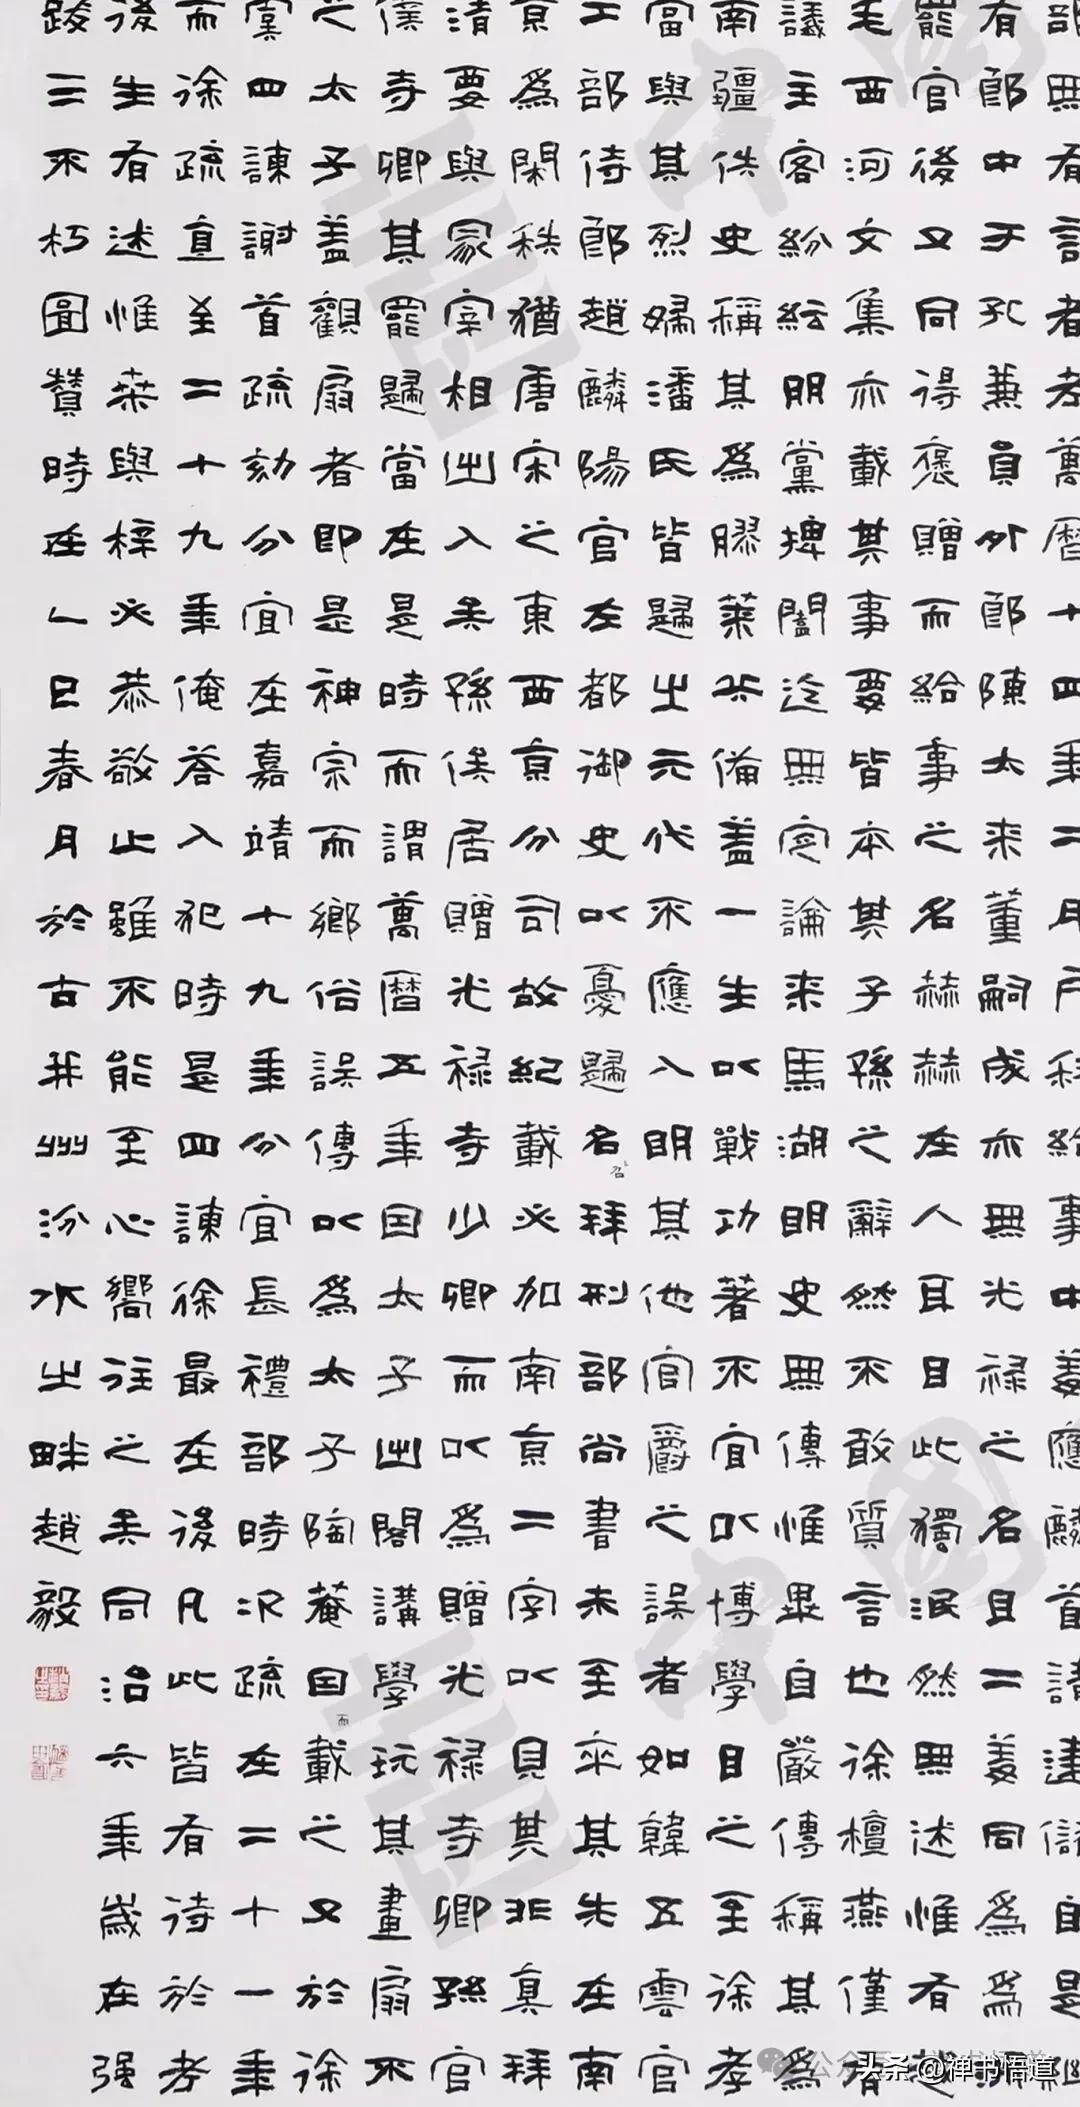 部無有記者考萬曆十四年二月戶科給事中姜應麟首請建儲自是
有郎中于孔兼員外郎陳太来董嗣成亦無光禄之名且二姜同為為
罷官後又同得褒贈而給事之名赫赫在人耳目此獨泯然無述惟有越
毛西河文集亦載其事要皆本其子孫之辭然不敢質言也徐檀燕僅有
議主客紛紜明黨捭闔迄無定論来馬湖明史無傳惟畢自嚴傳稱其為
南疆佚史稱其為膠萊兵備蓋一生以戰功著不宜以博學目之至徐孝
富與其烈婦潘氏皆歸之元代不應入明其他官爵之誤者如韓五雲官
工部侍郎趙麟陽官左都御史以憂歸名召拜刑部尚書未至卒其先在南
京為閑秩猶唐宋之東西京分司故紀載必加南京二字以見其非真拜
清要與冢宰相出入矣孫俟居贈光禄寺少卿而以為贈光禄寺卿孫官
僕寺卿其罷歸當在是時而謂萬曆五年国太子出閣講學玩其畫扇不
之太子蓋觀扇者即是神宗而鄉俗誤傳以為太子陶菴国而載之又於徐
寞四諫謝首疏劾分宜在嘉靖十九年分宜長禮部時次疏在二十一年
而徐疏直至二十九年俺荅入犯時是四諫徐最在後凡此皆有待於考
後生有述惟桒與梓必恭敬止雖不能至心嚮往之矣同治六年歲在强
跋三不朽圖贊時在乙巳春月於古并州汾水之畔趙毅
中國書
中國書
头条 @禅书悟道